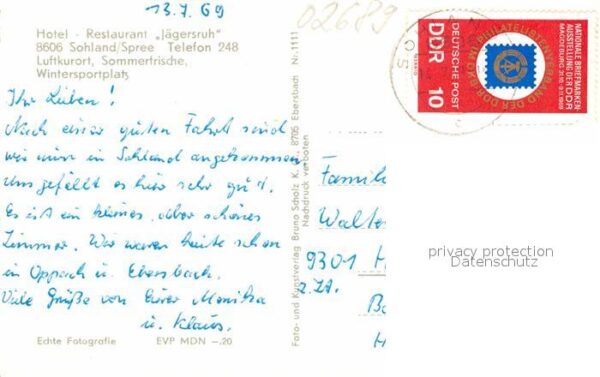 13.7.69
02689
Hotel - Restaurant „Jägersruh"
8606 Sohland/Spree Telefon 248
Luftkurort, Sommerfrische,
Wintersportplatz
Ihr Lieben!
Nach einer guten Fahrt sind
wir nun in Sohland angekommen.
Uns gefällt es hier sehr gut.
Es ist ein kleines, aber schönes
Zimmer. Wir waren heute schon
in Oppach u. Ebersbach.
Viele Grüße von Eurer Monika
u. Klaus.
Echte Fotografie EVP MDN -.20
Foto- und Kunstverlag Bruno Scholz K.G., 8705 Ebersbach Nr. 1111
Nachdruck verboten
NATIONALE BRIEFMARKEN-
AUSSTELLUNG DER DDR
MAGDEBURG 31.10.-9.11.1969
PHILATELISTENVERBAND DER DDR·DKB IM
DEUTSCHE POST
DDR 10
Famili
Walter
9301
z. Zt.
privacy protection
Datenschutz